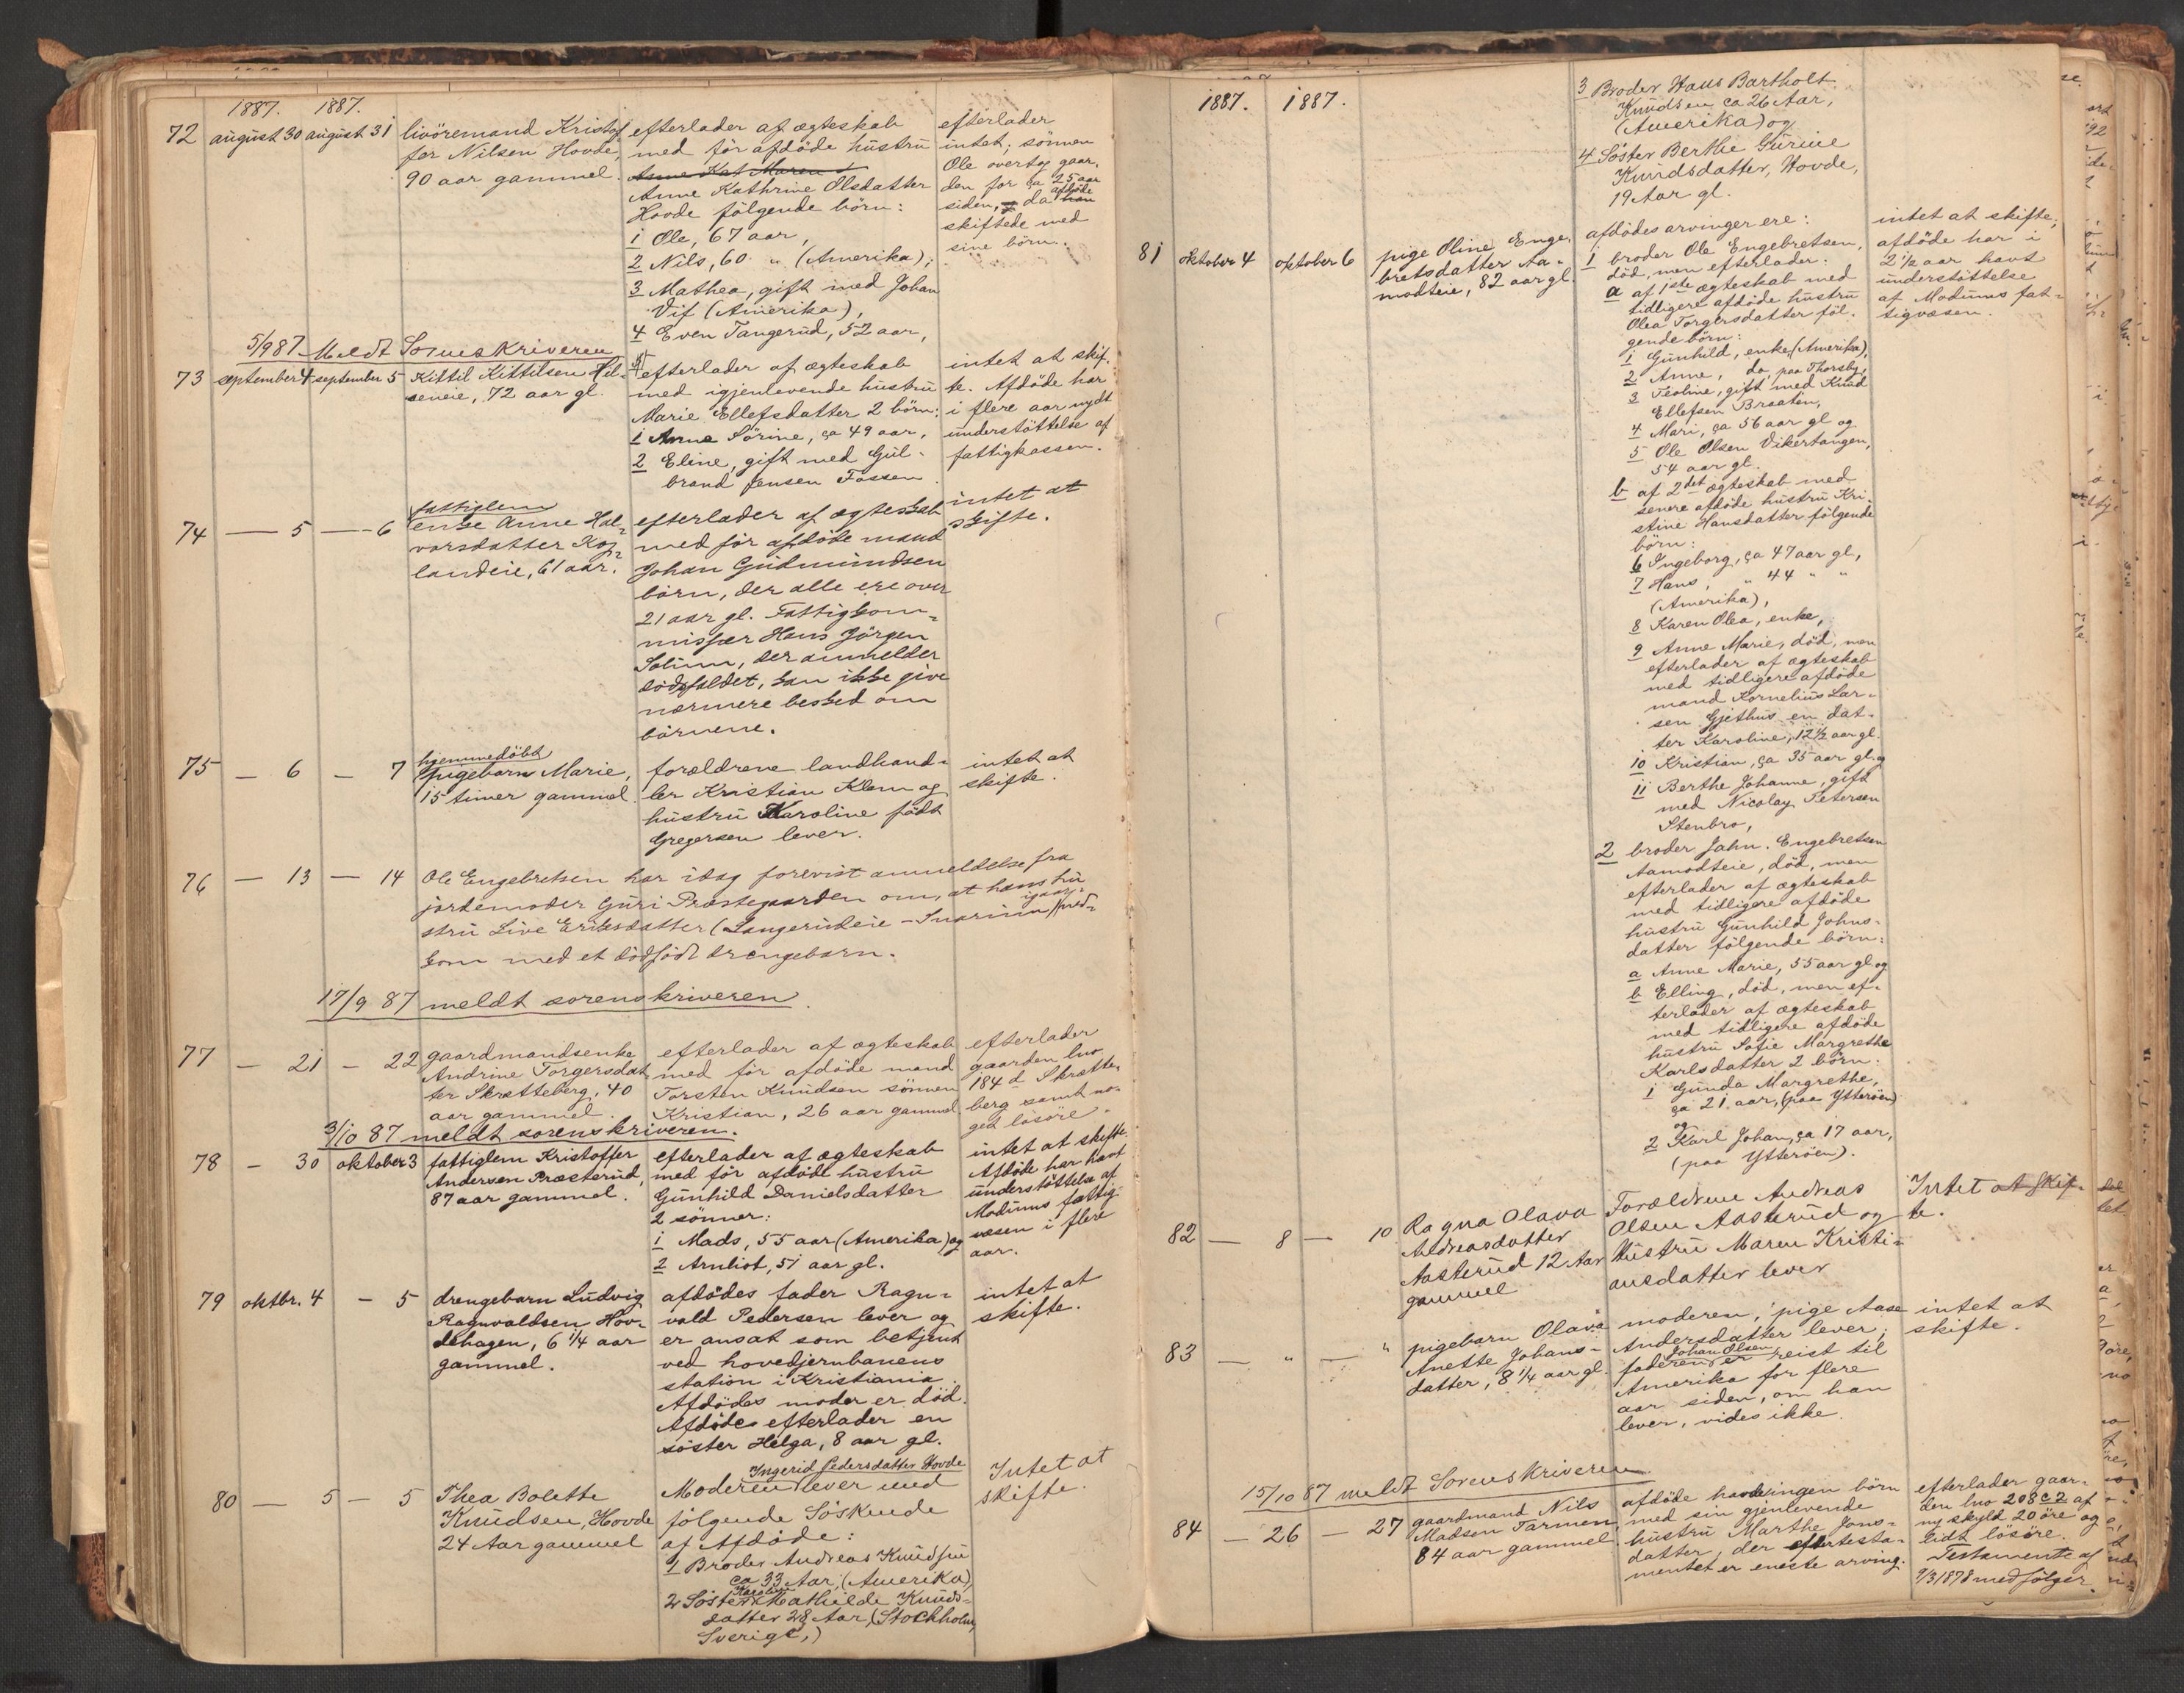 1887. 1887.
72 august 30 august 31 livöremand Kristof
fer Nilsen Hovde,
90 aar gammel.
efterlader af ægteskab
med för afdöde hustru
Anne Kat Maren
Anne Kathrine Olsdatter
Hovde fölgende börn:
1 Ole, 67 aar,
2 Nils, 60 " (Amerika);
3 Mathea, gift med Johan
Vif (Amerika),
4 Even Tangerud, 52 aar,
efterlader
intet; sönnen
Ole overtog gaar-
den for ca 25 aar
siden, da afdöde han
skiftede med
sine börn.
5/9 87 Meldt Sorenskriveren
73 september 4 september 5 Kittil Kittilsen
seneie, 72 aar gl.
efterlader af ægteskab
med igjenlevende hustru
Marie Ellefsdatter 2 börn:
1 Anne Sörine, ca 49 aar,
2 Eline, gift med Gul-
brand Jensen Fossen
intet at skif-
te. Afdöde har
i flere aar nydt
understöttelse af
fattigkassen.
74 — 5 — 6 fattiglem
enke Anne Hal-
vorsdatter Kop-
landeie, 61 aar.
efterlader af ægteskab
med för afdöde mand
Johan Gudmundsen
börn, der alle ere over
21 aar gl. Fattigkom-
missær Hans Jörgen
Solum, der anmelder
dödsfaldet, kan ikke give
nærmere besked om
börnene.
intet at
skifte.
75 — 6 — 7 hjemmedöbt
pigebarn Marie,
15 timer gammel.
forældrene landhand-
ler Kristian Klem og
hustru Karoline födt
Gregersen lever.
intet at
skifte.
76 — 13 — 14 Ole Engebretsen har idag forevist anmeldelse fra
jordemoder Guri Præstegaarden om, at hans hu-
stru Live Eriksdatter (Langerudeie - Snarum) igaar ned-
kom med et dödfödt drengebarn.
17/9 87 meldt sorenskriveren.
77 — 21 — 22 gaardmandsenke
Andrine Torgersdat-
ter Skretteberg, 40
aar gammel.
efterlader af ægteskab
med för afdöde mand
Torsten Knudsen sönnen
Kristian, 26 aar gammel.
efterlader
gaarden lno
184 d Skrette-
berg samt no-
get lösöre.
3/10 87 meldt sorenskriveren.
78 — 30 oktober 3 fattiglem Kristoffer
Andersen Præsterud,
87 aar gammel.
efterlader af ægteskab
med för afdöde hustru
Gunhild Danielsdatter
2 sönner:
1 Mads, 55 aar (Amerika) og
2 Arnliot, 51 aar gl.
intet at skifte.
Afdöde har havt
understöttelse af
Modums fattig-
væsen i flere
aar.
79 oktbr. 4 — 5 drengebarn Ludvig
Ragnvaldsen Hov-
dehagen, 6 1/4 aar
gammel.
afdödes fader Ragn-
vald Pedersen lever og
er ansat som betjent
ved hovedjernbanens
station i Kristiania.
Afdödes moder er död.
Afdöde efterlader en
söster Helga, 8 aar gl.
intet at
skifte.
80 — 5 — 5 Thea Bolette
Knudsen, Hovde
24 Aar gammel
Ingerid Pedersdatter Hovde
Moderen lever med
fölgende Söskende
af Afdöde:
1 Broder Andreas Knudsen
ca 33 Aar, (Amerika),
2 Söster Karoline Mathilde Knuds-
datter 28 Aar (Stockholm,
Sverige,)
Intet at
skifte.
1887. 1887.
3 Broder Hans Bartholt
Knudsen ca 26 Aar,
(Amerika) og
4 Söster Berthe Gurine
Knudsdatter, Hovde,
19 Aar gl.
81 oktober 4 oktober 6 pige Oline Enge-
bretsdatter Aa-
modteie, 82 aar gl.
afdödes arvinger ere:
1 broder Ole Engebretsen,
död, men efterlader:
a af 1ste ægteskab med
tidligere afdöde hustru
Olea Torgersdatter föl-
gende börn:
1 Gunhild, enke, (Amerika),
2 Anne, do, paa Thorsby,
3 Teoline, gift med Knud
Ellefsen Braaten,
4 Mari, ca 56 aar gl og
5 Ole Olsen Vikertangen,
54 aar gl.
b af 2det ægteskab med
senere afdöde hustru Kri-
stine Hansdatter fölgende
börn:
6 Ingeborg, ca 47 aar gl,
7 Hans, " 44 " "
(Amerika),
8 Karen Olea, enke,
9 Anne Marie, död, men
efterlader af ægteskab
med tidligere afdöde
mand Kornelius Lar-
sen Gjethus en dat-
ter Karoline, 12 1/2 aar gl.
10 Kristian, ca 35 aar gl. og
11 Berthe Johanne, gift
med Nicolay Petersen
Stenbro,
2 broder John Engebretsen
Aamodteie, död, men
efterlader af ægteskab
med tidligere afdöde
hustru Gunhild Johns-
datter fölgende börn:
a Anne Marie, 55 aar gl og
b Elling, död, men ef-
terlader af ægteskab
med tidligere afdöde
hustru Sofie Margrethe
Karlsdatter 2 börn:
1 Gunda Margrethe,
ca 21 aar, (paa Ytteröen)
og
2 Karl Johan, ca 17 aar,
(paa Ytteröen).
intet at skifte;
afdöde har i
2 1/2 aar havt
understöttelse
af Modums fat-
tigvæsen.
82 — 8 — 10 Ragna Olava
Andreasdatter
Aasterud 12 Aar
gammel
Forældrene Andreas
Olsen Aasterud og
Hustru Maren Kristi-
ansdatter lever
Intet at skif-
te.
83 — " — " pigebarn Olava
Anette Johans-
datter, 8 1/4 aar gl.
moderen, pige Aase
Andersdatter lever;
faderen Johan Olsen er reist til
Amerika for flere
aar siden, om han
lever, vides ikke.
intet at
skifte.
15/10 87 meldt Sorenskriveren
84 — 26 — 27 gaardmand Nils
Madsen Tarmen,
84 aar gammel.
afdöde har ingen börn
med sin gjenlevende
hustru Marthe Jons-
datter, der eftertesta-
mentet er eneste arving.
efterlader gaar-
den lno 208 c2 af
ny skyld 20 öre og
lidt lösöre.
Testamente af
9/3 1878 medfölger.